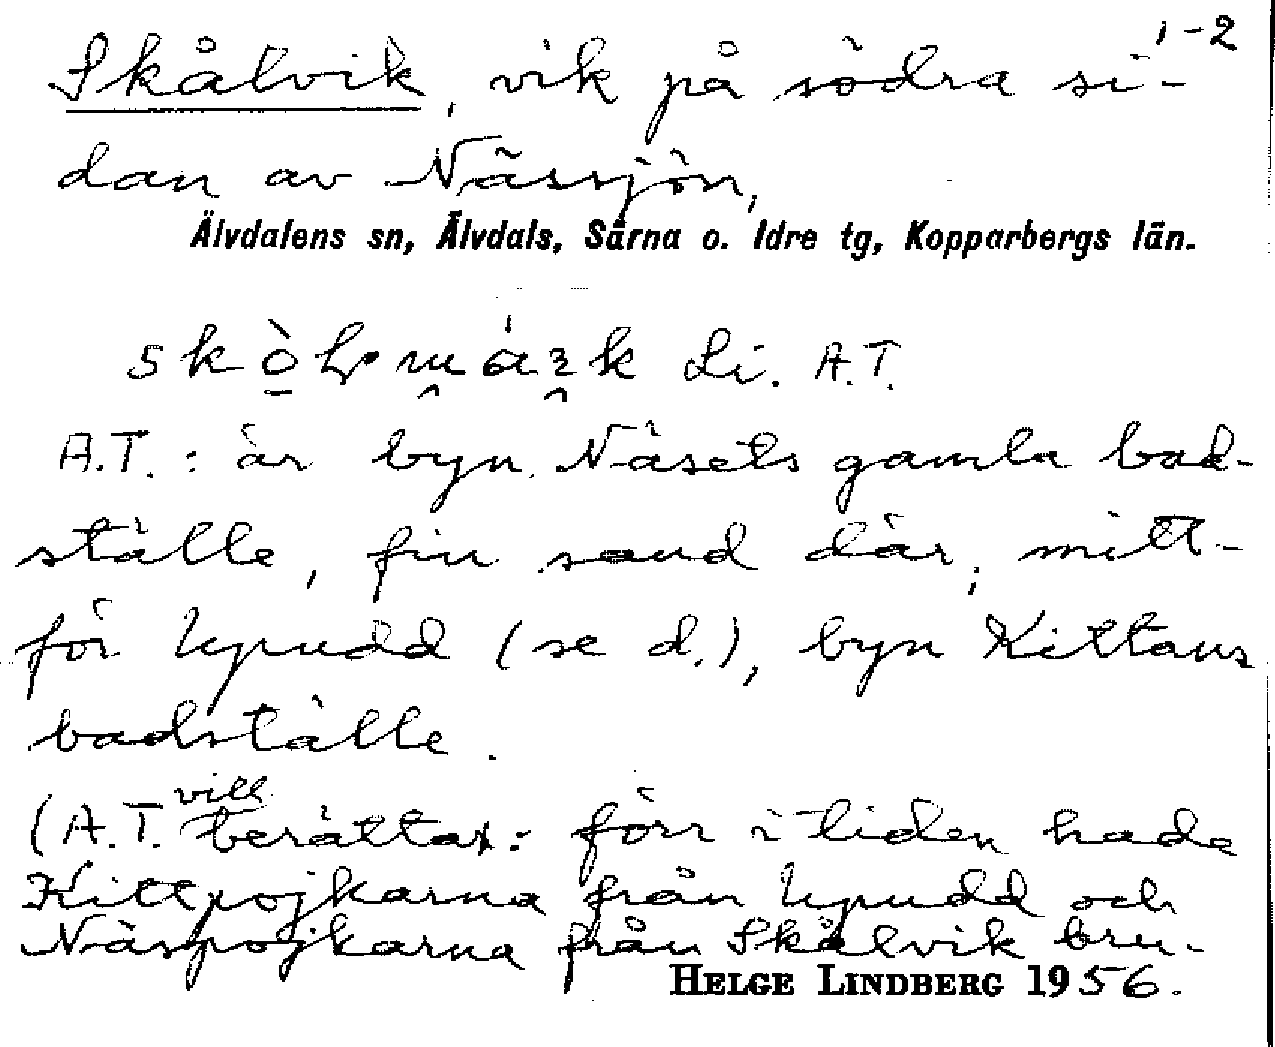 1-2
Skålvik, vik på södra si-
dan av Nässjön,
Älvdalens sn, Älvdals, Särna o. Idre tg, Kopparbergs län.
Li. A.T.
A.T.: är byn Näsets gamla bad-
ställe, fin sand där, mitt-
för Uprudd (se d.), byn Kittans
badställe.
(A.T. vill berätta: förr i tiden hade
Kittpojkarna från Uprudd och
Näspojkarna från Skålvik bru-
HELGE LINDBERG 1956.